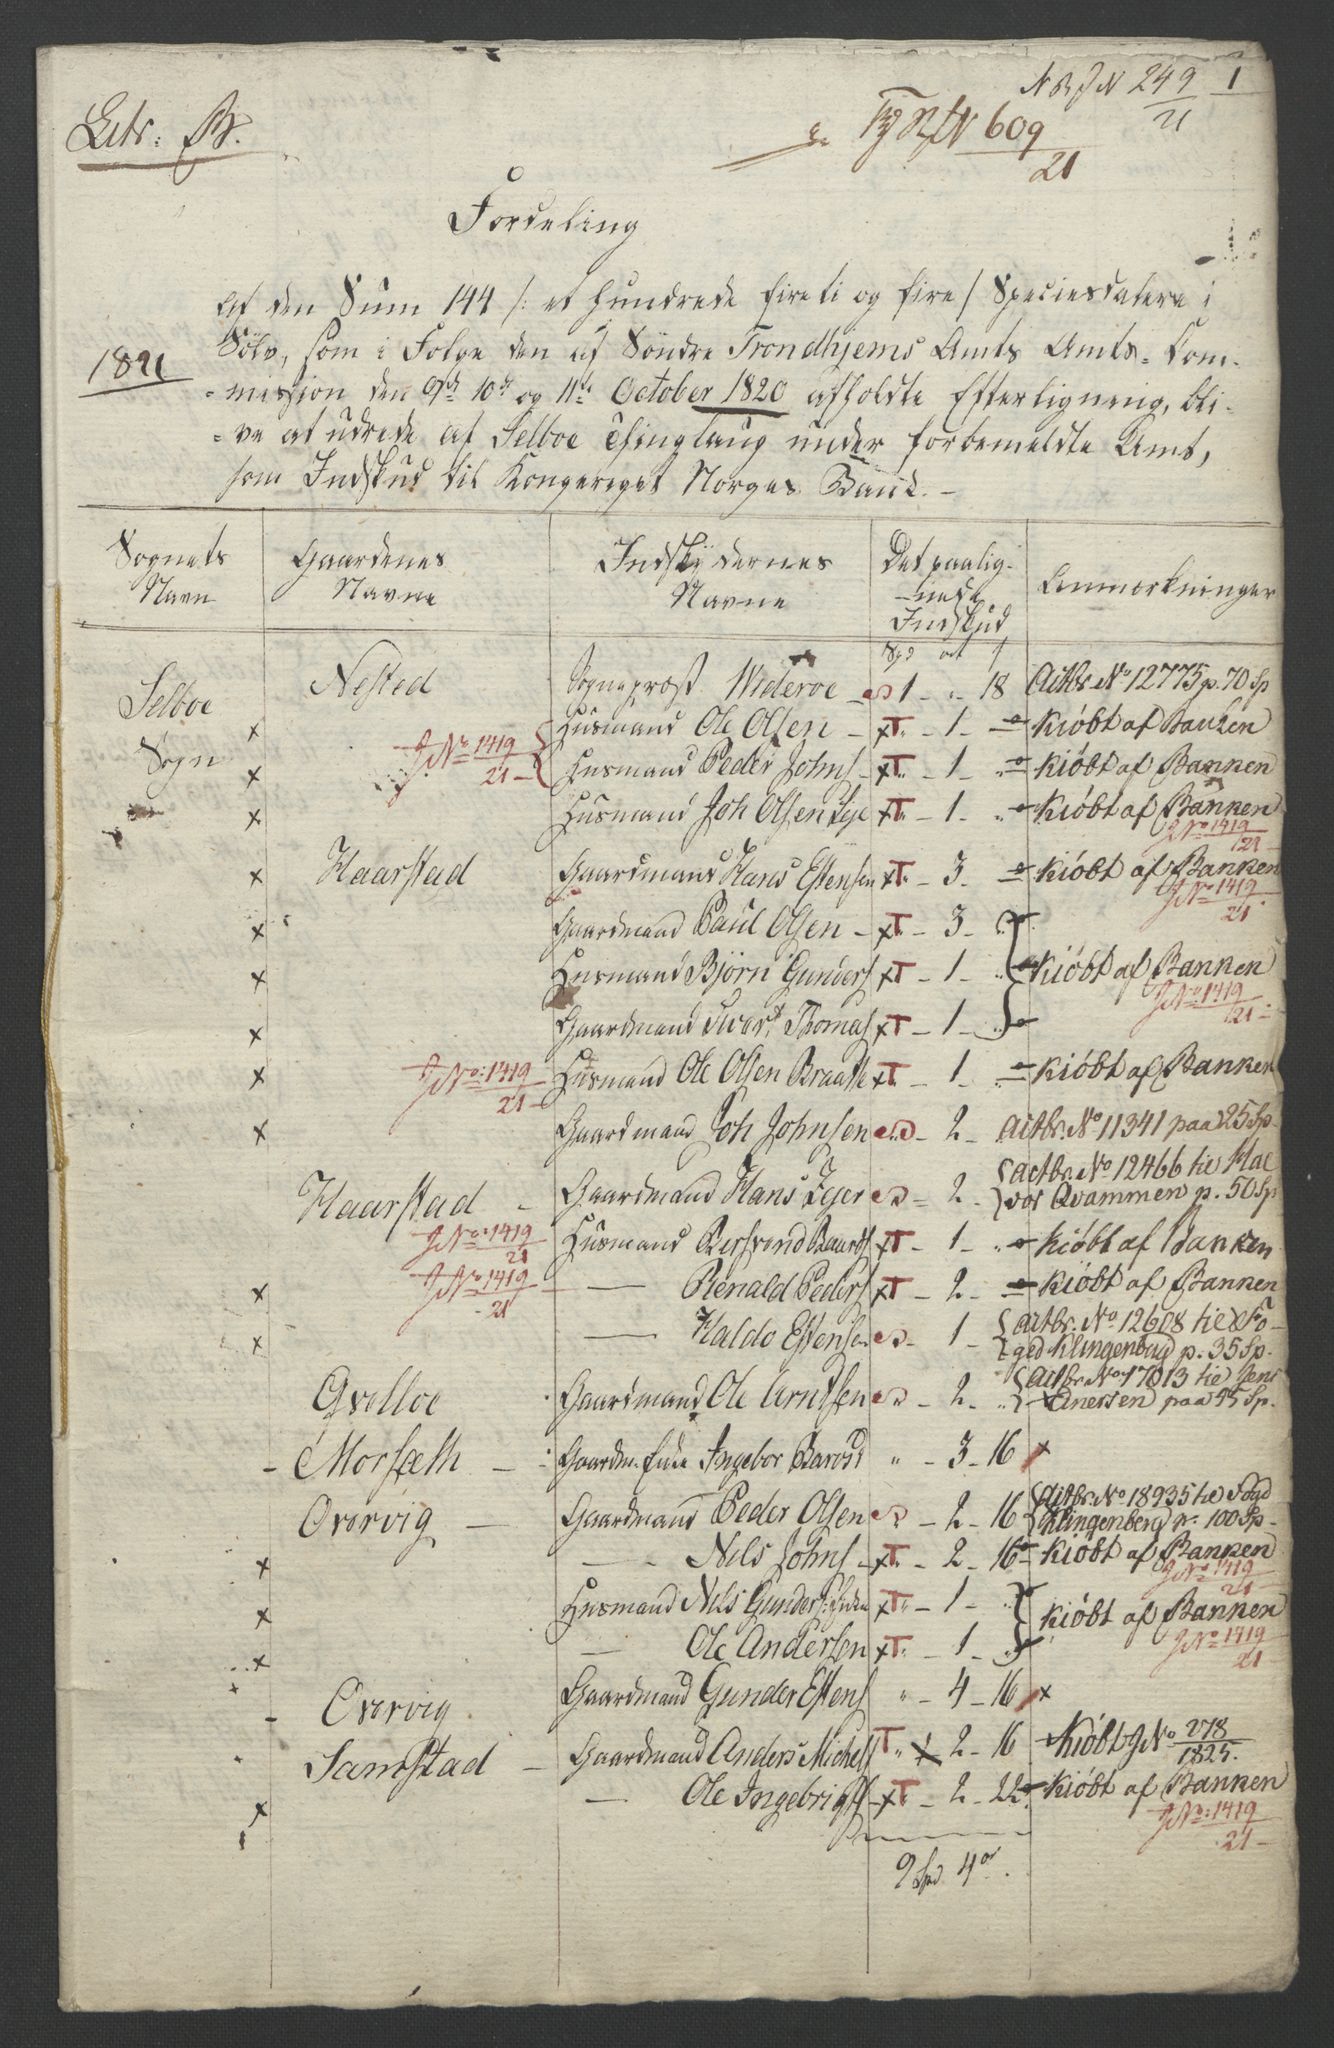 N 249 1
21
Litr: B.
N 609
21
Fordeling
af den Sum 144 /: et hundrede fireti og fire / Speciesdalere i
Sölv, som i Følge den af Söndre Trondhjems Amts Amts-Com-
1821
-mission den 9de 10de og 11te October 1820 afholdte Efterligning, bli-
-ve at udrede af Selboe Thinglaug under forbemeldte Amt,
som Indskud til Kongeriget Norges Bank. -
Sognets Navn
Gaardenes Navne
Indskydernes Navne
Det paalig-nede Indskud
Anmærkninger
Spd ort s
Selboe Nested Sogneprost Wideroe 1 - " 18 Actbr. No 12775 p. 70 Sp
x Husmand Ole Olsen - xT" - 1 - Kiöbt af Banken
Sogn JNo 1419
21
x Husmand Peder Johns - xT" - 1 - Kiöbt af Banken
x Husmand Joh Olsen Eye xT" - 1 - Kiöbt af Banken
JNo 1419
21
x Haarstad Gaardmand Hans Estensen xT" - 3 - Kiöbt af Banken
JNo 1419
21
x Gaardmand Paul Olsen - xT" - 3 -
x Husmand Björn Gunders xT - 1 - Kiöbt af Banken
JNo 1419
21
x Gaardmand Thomas xT - 1 -
x JNo: 1419
21
Husmand Ole Olsen Braatte xT" - 1 - Kiöbt af Banken
x Gaardmand Joh Johnsen - 2 - Actbr. No 11341 paa 25 Sp.
Haarstad - Gaardmand Hans - 2 - Actbr No 12466 til Hal
vor Qvammen p. 50 Sp
JNo: 1419
21
Husmand Baards xT - 1 - Kiöbt af Banken
x JNo 1419
21
— Renald Peders xT - 2 - Kiöbt af Banken
x — Haldo Estensen - 1 - Actbr. No 12608 til Fo-
ged Klingenberg p. 35 Sp.
Qvelloe Gaardmand Ole Arntsen - 2 - Actbr No 17013 til Jens
Enersen paa 45 Sp.
- Morsæth - Gaardm. Enke Ingebor " - 3 - 16 x
Overvig — Gaardmand Peder Olsen - 2 - 16 Actbr. No 18935 til Fogd
Klingenberg p. 100 Sp -
x — Nils Johns - xT" - 2 - 16 Kiöbt af Banken
JNo 1419
21
x Husmand Nils Gunders: xT" - 1 - Kiöbt af Banken
x — Ole Andersen xT" - 1 -
JNo 1419
21
- Overvig Gaardmand Gunder Estens " - 4 - 16 x
Samstad — Gaardmand Anders Michels T " x 2 - 16 Kiöbt JNo 278
1825.
x — Ole Ingebrigts - xT" - 2 - 22 Kiöbt af Banken
JNo: 1419
21
9 Spd 4 or.